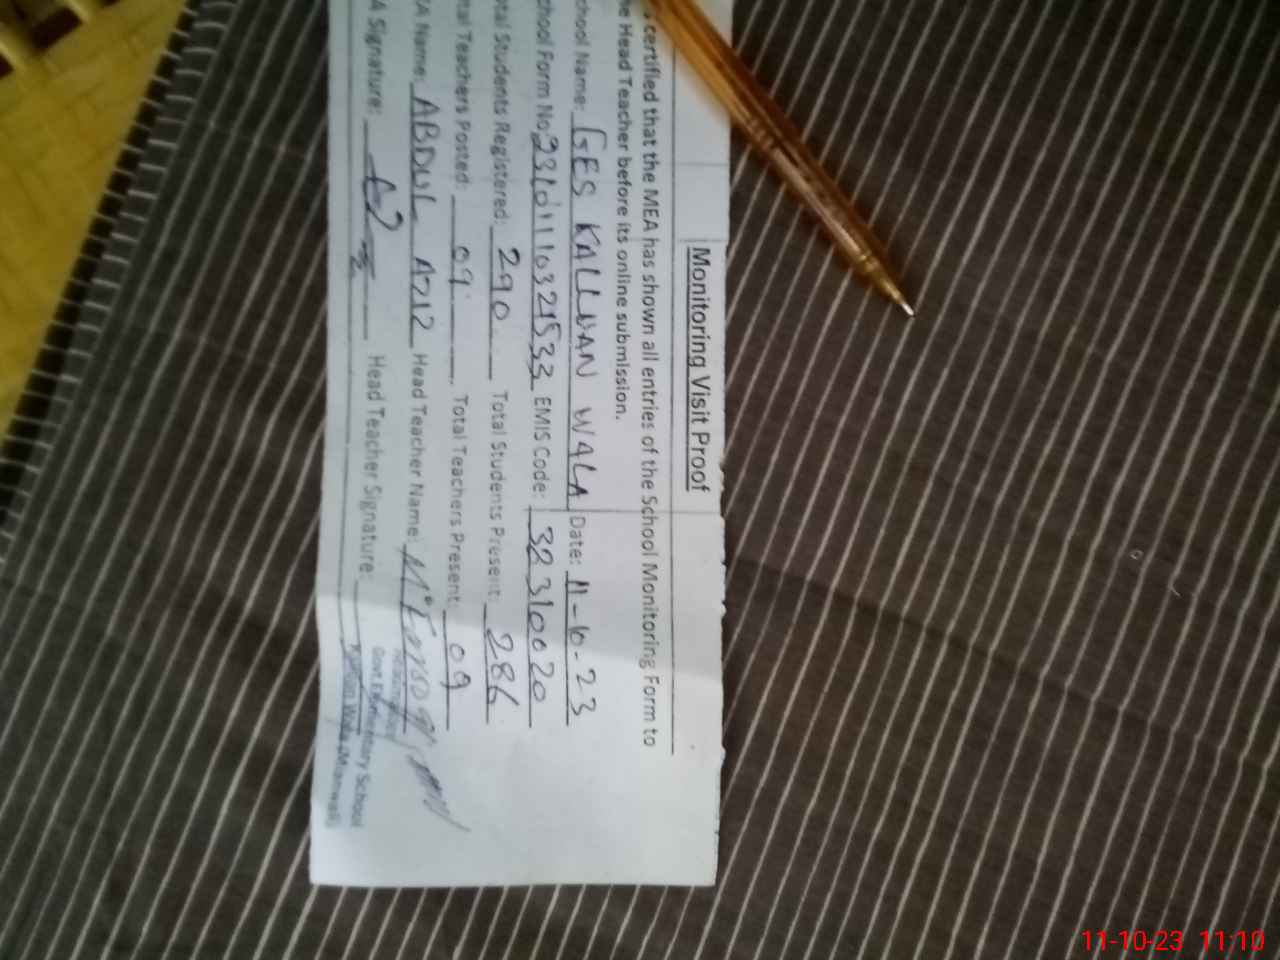 Monitoring Visit Proof
certified that the MEA has shown all entries of the School Monitoring Form to
Head Teacher before its online submission.
Name: GES KALLUAN WALA Date: 11-10-23
Form No: EMIS Code: 32310020
Students Registered: 290 Total Students Present: 286
Teachers Posted: 09 Total Teachers Present: 09
Name: ABDUL AZIZ Head Teacher Name:
Signature: Head Teacher Signature:
Headmaster
Govt Elementary School
Wala (Mianwali)
11-10-23 11:10